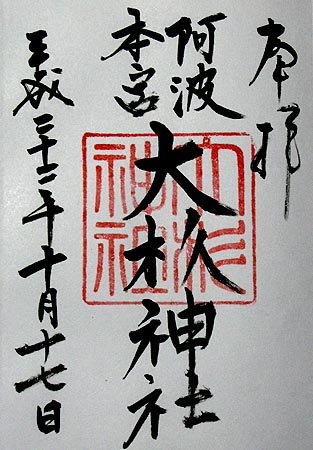 奉拝
阿波
本宮
大杦神社
平成二十二年十月十七日
大杉
神社